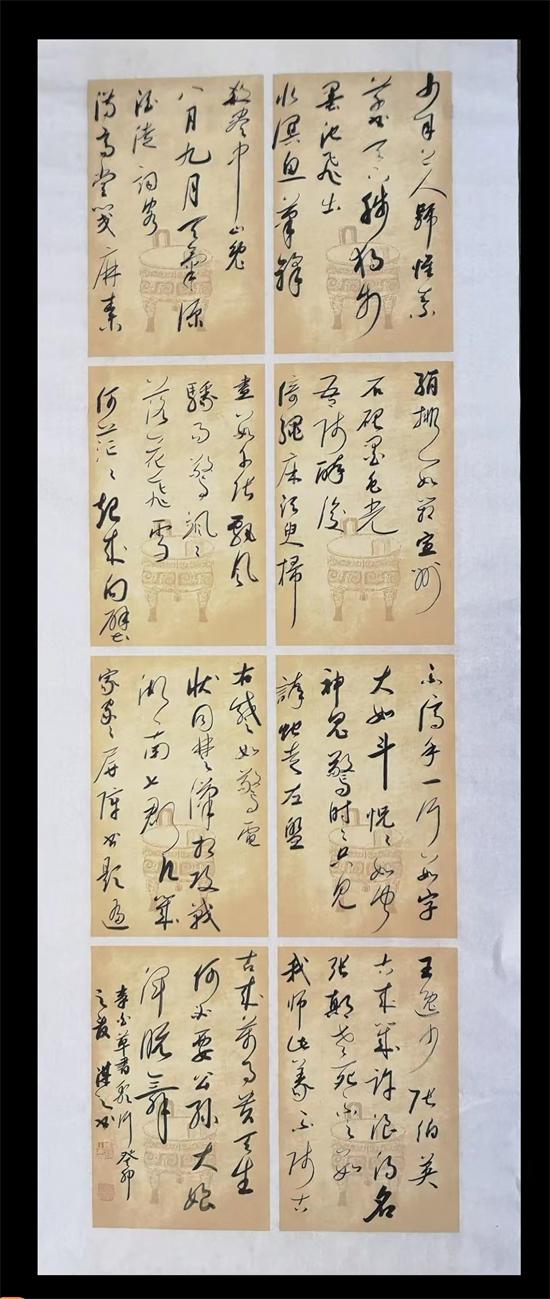 少年上人號懷素
草書天下稱獨步
墨池飛出
北溟魚筆鋒
殺盡中山兔
八月九月天氣涼
酒徒詞客
滿高堂箋麻素
絹排數箱宣州
石硯墨色光
吾師醉後
倚繩床須臾掃
盡數千張飄風
驟雨驚颯々
落花飛雪
何茫々起來向壁
不停手一行數字
大如斗怳々如聞
神鬼驚時々只見
龍蛇走左盤
右蹙如驚電
狀同楚漢相攻戰
湖南七郡凡幾
家家々屏障書題遍
王逸少張伯英
古來幾許浪得名
張顛老死不足數
我師此義不師古
古來萬事貴天生
何必要公孫大娘
渾脫舞
李白草書歌行癸卯
之夏漢之書